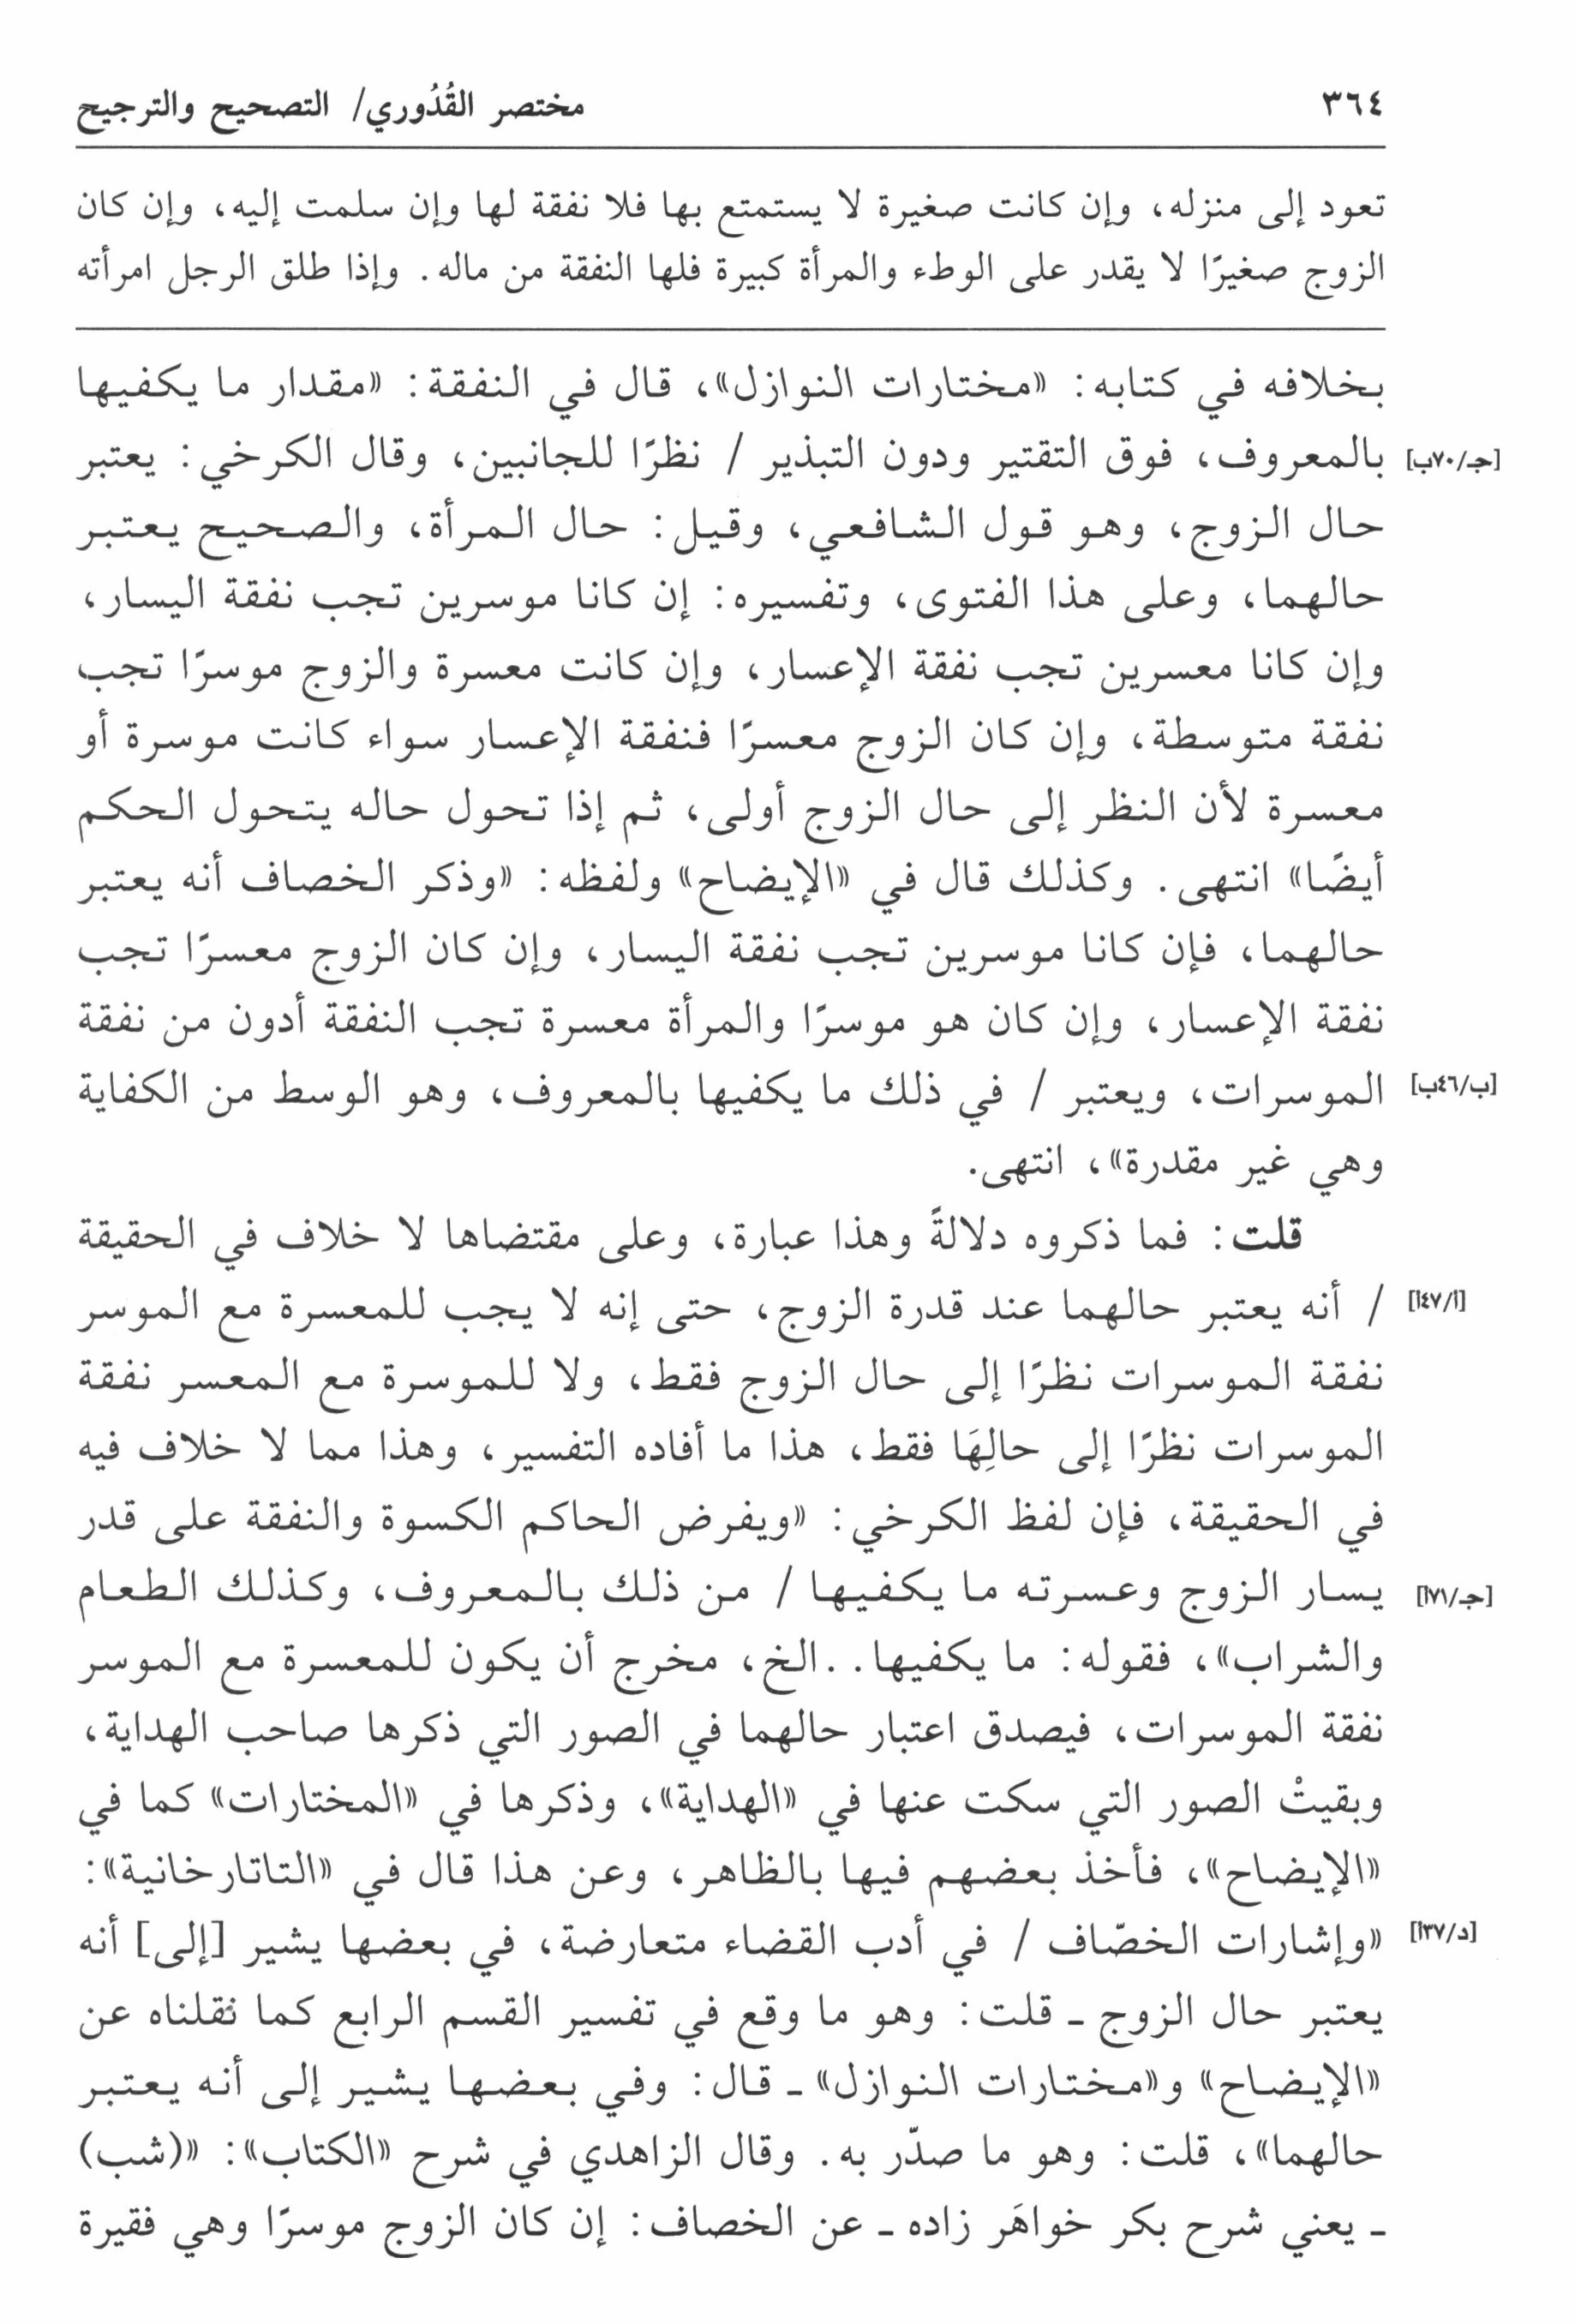 ٣٦٤ مختصر القُدُوري/ التصحيح والترجيح
تعود إلى منزله، وإن كانت صغيرة لا يستمتع بها فلا نفقة لها وإن سلمت إليه، وإن كان
الزوج صغيرًا لا يقدر على الوطء والمرأة كبيرة فلها النفقة من ماله. وإذا طلق الرجل امرأته
بخلافه في كتابه: «مختارات النوازل»، قال في النفقة: «مقدار ما يكفيها
[جـ/٧٠ب] بالمعروف، فوق التقتير ودون التبذير / نظرًا للجانبين، وقال الكرخي: يعتبر
حال الزوج، وهو قول الشافعي، وقيل: حال المرأة، والصحيح يعتبر
حالهما، وعلى هذا الفتوى، وتفسيره: إن كانا موسرين تجب نفقة اليسار،
وإن كانا معسرين تجب نفقة الإعسار، وإن كانت معسرة والزوج موسرًا تجب
نفقة متوسطة، وإن كان الزوج معسرًا فنفقة الإعسار سواء كانت موسرة أو
معسرة لأن النظر إلى حال الزوج أولى، ثم إذا تحول حاله يتحول الحكم
أيضًا» انتهى. وكذلك قال في «الإيضاح» ولفظه: «وذكر الخصاف أنه يعتبر
حالهما، فإن كانا موسرين تجب نفقة اليسار، وإن كان الزوج معسرًا تجب
نفقة الإعسار، وإن كان هو موسرًا والمرأة معسرة تجب النفقة أدون من نفقة
[ب/٤٦ب] الموسرات، ويعتبر / في ذلك ما يكفيها بالمعروف، وهو الوسط من الكفاية
وهي غير مقدرة»، انتهى.
قلت: فما ذكروه دلالةً وهذا عبارة، وعلى مقتضاها لا خلاف في الحقيقة
[أ/٤٧أ] / أنه يعتبر حالهما عند قدرة الزوج، حتى إنه لا يجب للمعسرة مع الموسر
نفقة الموسرات نظرًا إلى حال الزوج فقط، ولا للموسرة مع المعسر نفقة
الموسرات نظرًا إلى حالِهَا فقط، هذا ما أفاده التفسير، وهذا مما لا خلاف فيه
في الحقيقة، فإن لفظ الكرخي: «ويفرض الحاكم الكسوة والنفقة على قدر
[جـ/٧١أ] يسار الزوج وعسرته ما يكفيها / من ذلك بالمعروف، وكذلك الطعام
والشراب»، فقوله: ما يكفيها..الخ، مخرج أن يكون للمعسرة مع الموسر
نفقة الموسرات، فيصدق اعتبار حالهما في الصور التي ذكرها صاحب الهداية،
وبقيتْ الصور التي سكت عنها في «الهداية»، وذكرها في «المختارات» كما في
«الإيضاح»، فأخذ بعضهم فيها بالظاهر، وعن هذا قال في «التاتارخانية»:
[د/٣٧أ] «وإشارات الخصّاف / في أدب القضاء متعارضة، في بعضها يشير [إلى] أنه
يعتبر حال الزوج ـ قلت: وهو ما وقع في تفسير القسم الرابع كما نقلناه عن
«الإيضاح» و«مختارات النوازل» ـ قال: وفي بعضها يشير إلى أنه يعتبر
حالهما»، قلت: وهو ما صدّر به. وقال الزاهدي في شرح «الكتاب»: «(شب)
ـ يعني شرح بكر خواهَر زاده ـ عن الخصاف: إن كان الزوج موسرًا وهي فقيرة